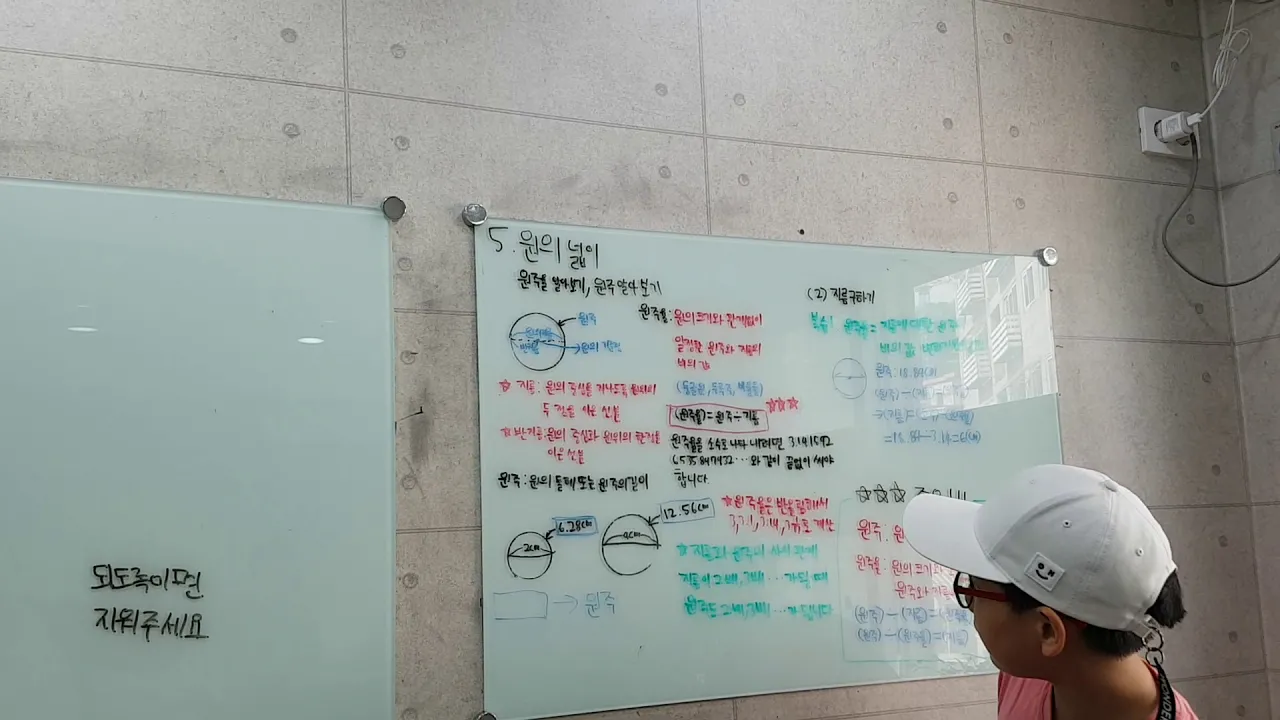 되도록이면
지워주세요
5. 원의 넓이
원주율 알아보기, 원주 알아보기
원주
원의 지름
반지름
원주율: 원의 크기와 관계없이
일정한 원주와 지름의
비의 값
(원주율) = 원주÷지름
☆☆☆
원주율을 소수로 나타내려면 3.141592
와 같이 끝없이 써야
합니다.
☆ 지름: 원의 중심을 지나도록 원위의
두 점을 이은 선분
☆ 반지름: 원의 중심과 원위의 한 점을
이은 선분
원주: 원의 둘레 또는 원주의 길이
2cm
6.28cm
4cm
12.56cm
→ 원주
☆ 원주율은 반올림해서
3, 3.1, 3.14, 로 계산
☆ 지름과 원주의 사이 관계
지름이 2배, 3배 ... 가 될 때
원주도 2배, 3배 ... 가 됩니다
(2) 지름구하기
복습! 원주율 = 지름에 대한 원주
비의 값
원주: 18.84cm
=18.84÷3.14=6(cm)
☆☆☆
원주: 원
원주율: 원의 크기와
원주와 지름
(원주)÷(지름)=(원주율)
(원주)÷(원주율)=(지름)